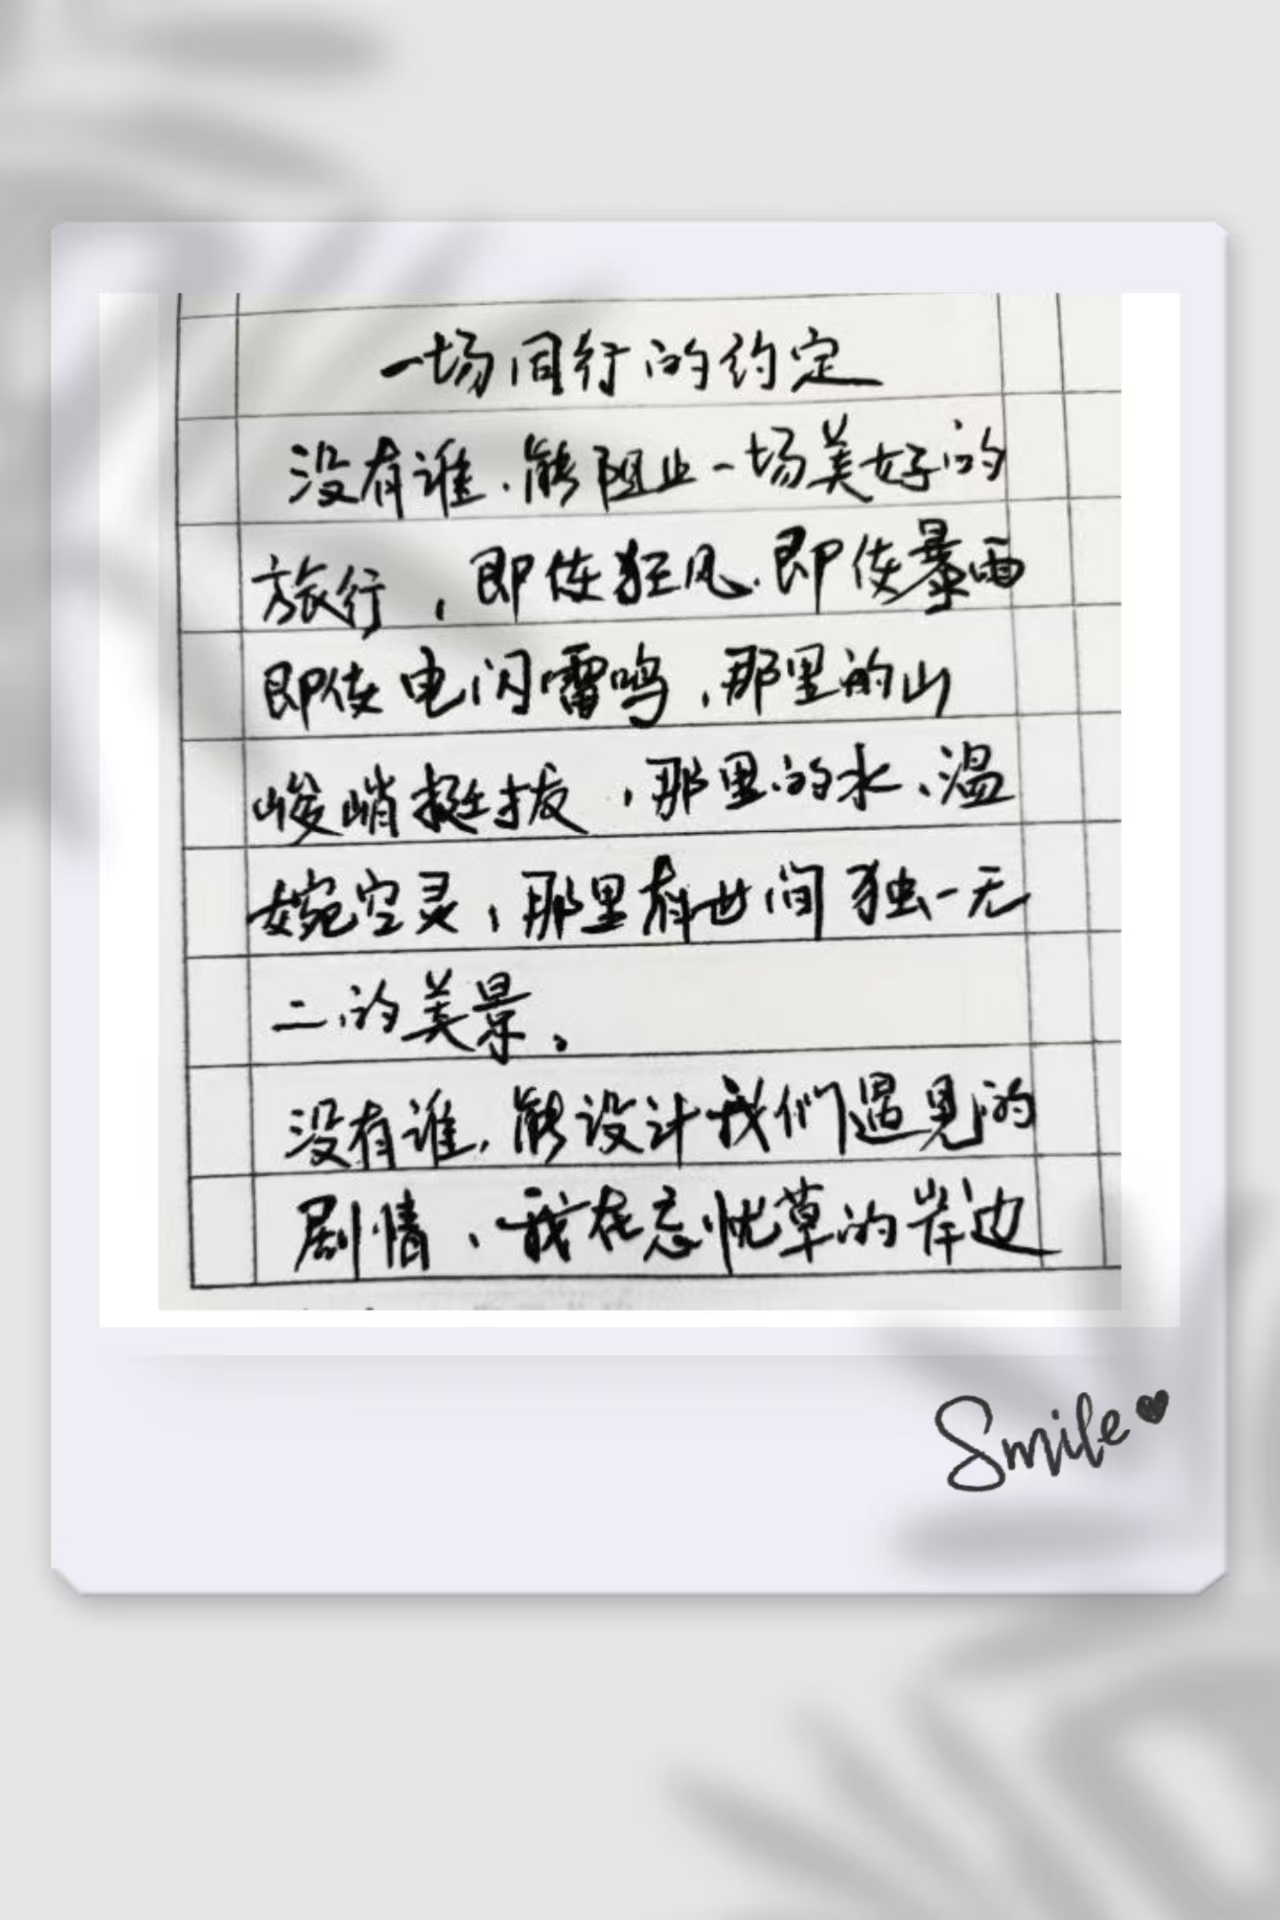 一场同行的约定
没有谁,能阻止一场美好的
旅行,即使狂风,即使暴雨
即使电闪雷鸣,那里的山
峻峭挺拔,那里的水、温
婉空灵,那里有世间独一无
二的美景。
没有谁,能设计我们遇见的
剧情,我在忘忧草的岸边
Smile